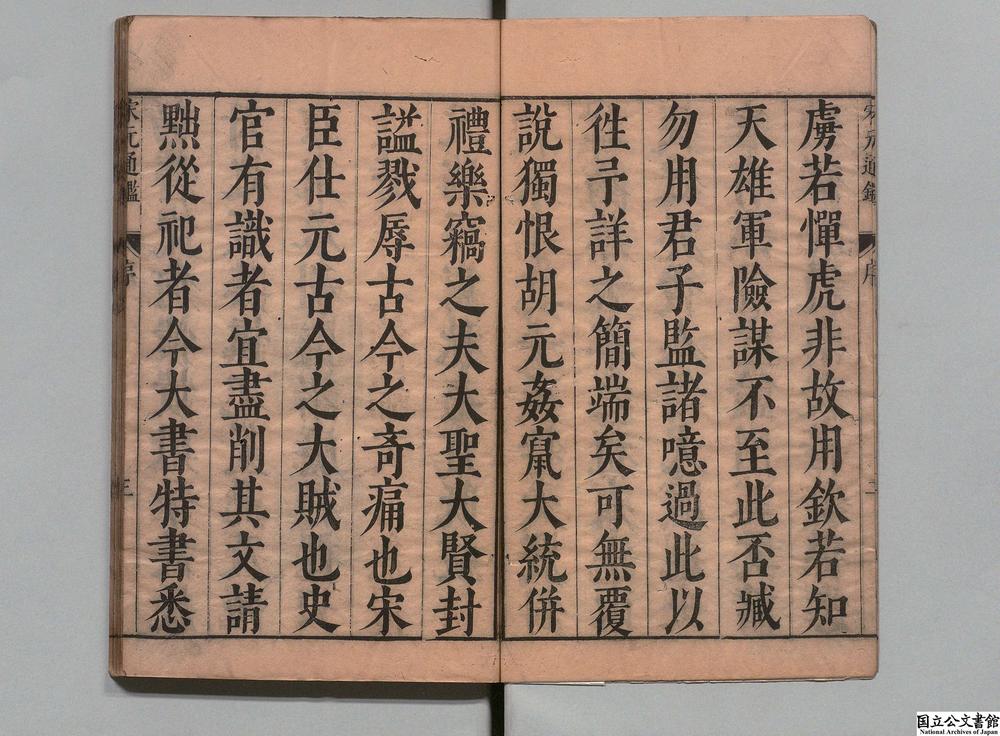 虜若憚虎非故用欽若知
天雄軍險謀不至此否臧
勿用君子監諸噫過此以
徃予詳之簡端矣可無覆
說獨恨胡元姦竄大統併
禮樂竊之夫大聖大賢封
謚戮辱古今之奇痛也宋
臣仕元古今之大賊也史
官有識者宜盡削其文請
黜從祀者今大書特書悉
宋元通鑑
序
三
国立公文書館
National Archives of Japan